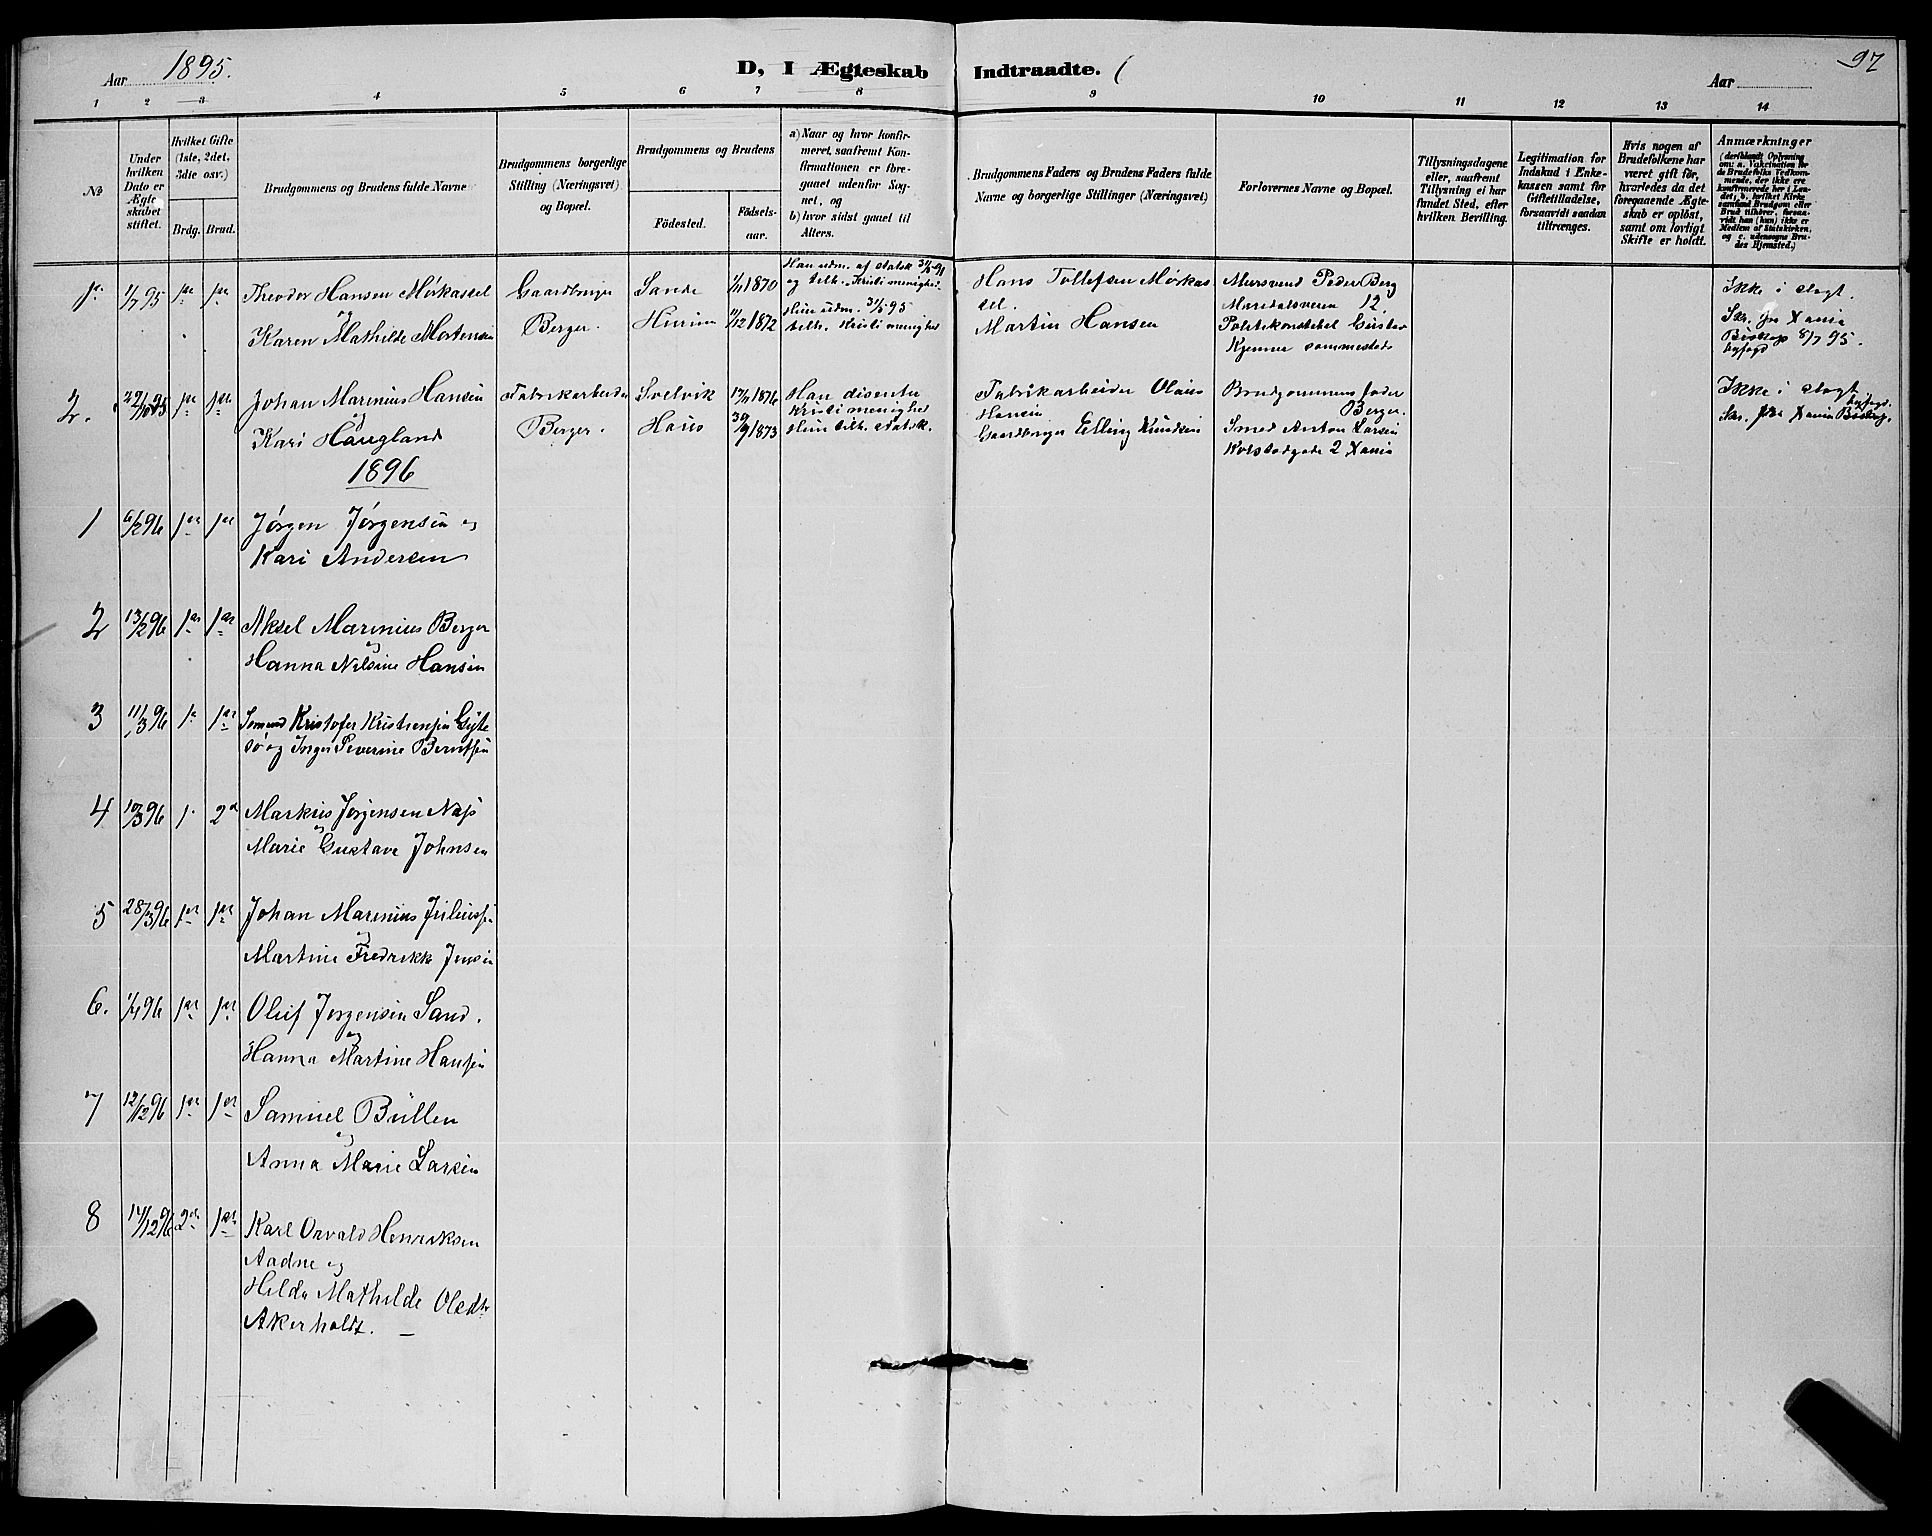 Aar 1895.
D, I Ægteskab Indtraadte.
97
Aar
1 2 3 4 5 6 7 8 9 10 11 12 13 14
No
Under hvilken Dato er Ægteskabet stiftet.
Hvilket Gifte (1ste, 2det, 3die osv.)
Brdg. Brud.
Brudgommens og Brudens fulde Navne
Brudgommens borgerlige Stilling (Næringsvei) og Bopæl.
Brudgommens og Brudens
Födested.
Födsels-aar.
a) Naar og hvor konfirmeret, saafremt Konfirmationen er foregaaet udenfor Sognet, og
b) hvor sidst gaaet til Alters.
Brudgommens Faders og Brudens Faders fulde Navne og borgerlige Stillinger (Næringsvei)
Forlovernes Navne og Bopæl.
Tillysningsdagene eller, saafremt Tillysning ei har fundet Sted, efter hvilken Bevilling.
Legitimation for Indskud i Enkekassen samt for Giftetilladelse, forsaavidt saadan tiltrænges.
Hvis nogen af Brudefolkene har været gift för, hvorledes da det foregaaende Ægteskab er oplöst, samt om lovligt Skifte er holdt.
Anmærkninger
(deriblandt Oplysning om: a. Vakcination for de Brudefolks Vedkommende, der ikke ere konfirmerede her i Landet; b. hvilket Kirkesamfund Brudgom eller Brud tilhörer, forsaavidt han (hun) ikke er Medlem af Statskirken, og c. udensogns Brudes Hjemsted.)
1/7 95 Theodor Hansen Mörkassel
og
Karen Mathilde Mortensen
Gaardbruger
Berger.
Sande
Hurum
1/11 1870
11/12 1872
Han udm. af statsk 31/5 91
og tilh. Kristi menighed.
Hun udm. 31/5 95
tilh. Kristi menighed
Hans Tollefsen Mörkas
sel.
Martin Hansen
Mursvend Peder Berg
Maridalsveien 12.
Politikonstabel Gustav
Kjenner sammesteds
Ikke i slegt.
Skr. fra Xania
Biskop 8/7 95.
byfogd
2. 29/10 95 Johan Marinius Hansen
og
Kari Haugland
Fabrikarbeider
Berger.
Svelvik
Haus
17/11 1876
30/9 1873
Han disenter
Kristi menighed
Hun tilh. statsk.
Fabrikarbeider Olaus
Hansen
Gaardbruger Elling Knudsen
Brudgommens fader
Berger.
Smed Anton Larsen
Korsvolsgade 2 Xania
Ikke i slegt
byfogd.
Skr. fra Xania Biskop.
1896
1 6/2 96 1ste 1ste Jörgen Jörgensen og
Kari Andersen
2 13/2 96 Aksel Marinius Berger
og
Hanna Nilsine Hansen
3 11/3 96 Kristofer Kristiensen
og Severine Berntsen
4 10/3 96 1 2 Markus Jörgensen Næs
og
Marie Gustave Johnsen
5 28/3 96 Johan Marinius Juliussen
og
Martine Fredrikke Jensen
6. 1/4 96 Oluf Jörgensen Sand.
og
Hanna Martine Hansen
7 12/12 96 Samuel Büllen
og
Anna Marie Larsen
8 14/12 96 Karl Osvald Henriksen
Aadne og
Hilda Mathilde Olsdtr
Akerholdt. —